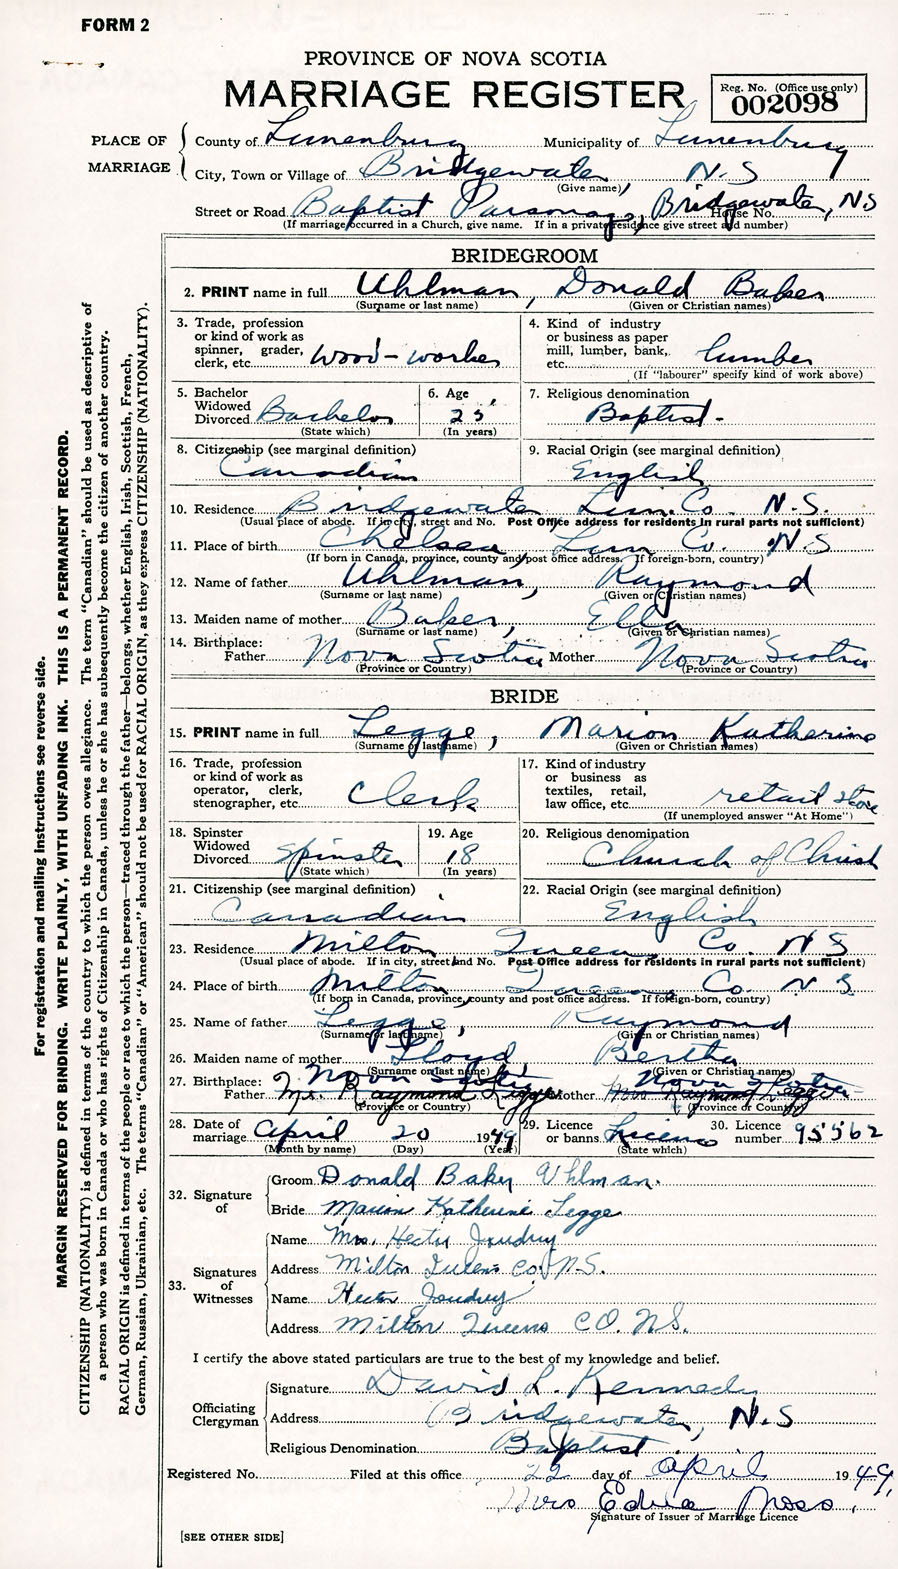 FORM 2
PROVINCE OF NOVA SCOTIA
MARRIAGE REGISTER
Reg. No. (Office use only)
002098
PLACE OF MARRIAGE
County of Lunenburg Municipality of Lunenburg
City, Town or Village of Bridgewater, N.S
(Give name)
Street or Road Baptist Parsonage, Bridgewater, N.S House No.
(If marriage occurred in a Church, give name. If in a private residence give street and number)
BRIDEGROOM
2. PRINT name in full Uhlman, Donald Baker
(Surname or last name) (Given or Christian names)
3. Trade, profession or kind of work as spinner, grader, clerk, etc. wood-worker
4. Kind of industry or business as paper mill, lumber, bank, etc. lumber
(If "labourer" specify kind of work above)
5. Bachelor Widowed Divorced Bachelor
(State which)
6. Age 23
(In years)
7. Religious denomination
Baptist-
8. Citizenship (see marginal definition)
Canadian
9. Racial Origin (see marginal definition)
English
10. Residence Bridgewater Lun. Co. N.S.
(Usual place of abode. If in city, street and No. Post Office address for residents in rural parts not sufficient)
11. Place of birth Chelsea Lun Co. N S
(If born in Canada, province, county and post office address. If foreign-born, country)
12. Name of father Uhlman, Raymond
(Surname or last name) (Given or Christian names)
13. Maiden name of mother Baker, Ella
(Surname or last name) (Given or Christian names)
14. Birthplace:
Father Nova Scotia Mother Nova Scotia
(Province or Country) (Province or Country)
BRIDE
15. PRINT name in full Legge, Marion Katherine
(Surname or last name) (Given or Christian names)
16. Trade, profession or kind of work as operator, clerk, stenographer, etc. Clerk
17. Kind of industry or business as textiles, retail, law office, etc. retail store
(If unemployed answer "At Home")
18. Spinster Widowed Divorced Spinster
(State which)
19. Age
18
(In years)
20. Religious denomination
Church of Christ
21. Citizenship (see marginal definition)
Canadian
22. Racial Origin (see marginal definition)
English
23. Residence Milton Queens Co. N S
(Usual place of abode. If in city, street and No. Post Office address for residents in rural parts not sufficient)
24. Place of birth Milton Queens Co. N S.
(If born in Canada, province, county and post office address. If foreign-born, country)
25. Name of father Legge, Raymond
(Surname or last name) (Given or Christian names)
26. Maiden name of mother Lloyd Bertha
(Surname or last name) (Given or Christian names)
27. Birthplace: Nova Scotia Nova Scotia
Father Mr. Raymond Legge Mother Mrs Raymond Legge
(Province or Country) (Province or Country)
28. Date of marriage April 20 1949
(Month by name) (Day) (Year)
29. Licence or banns License
(State which)
30. Licence number 95562
32. Signature of
Groom Donald Baker Uhlman.
Bride Marion Katherine Legge
33. Signatures of Witnesses
Name Mrs. Hector Joudrey
Address Milton Queens Co. N.S.
Name Hector Joudrey
Address Milton Queens CO. N.S.
I certify the above stated particulars are true to the best of my knowledge and belief.
Officiating Clergyman
Signature David L. Kennedy
Address Bridgewater, N.S
Religious Denomination Baptist
Registered No. Filed at this office 22 day of April 1949,
Mrs Edna Moss,
Signature of Issuer of Marriage Licence
[SEE OTHER SIDE]
For registration and mailing instructions see reverse side.
MARGIN RESERVED FOR BINDING. WRITE PLAINLY, WITH UNFADING INK. THIS IS A PERMANENT RECORD.
CITIZENSHIP (NATIONALITY) is defined in terms of the country to which the person owes allegiance. The term "Canadian" should be used as descriptive of
a person who was born in Canada or who has rights of Citizenship in Canada, unless he or she has subsequently become the citizen of another country.
RACIAL ORIGIN is defined in terms of the people or race to which the person—traced through the father—belongs, whether English, Irish, Scottish, French,
German, Russian, Ukrainian, etc. The terms "Canadian" or "American" should not be used for RACIAL ORIGIN, as they express CITIZENSHIP (NATIONALITY).